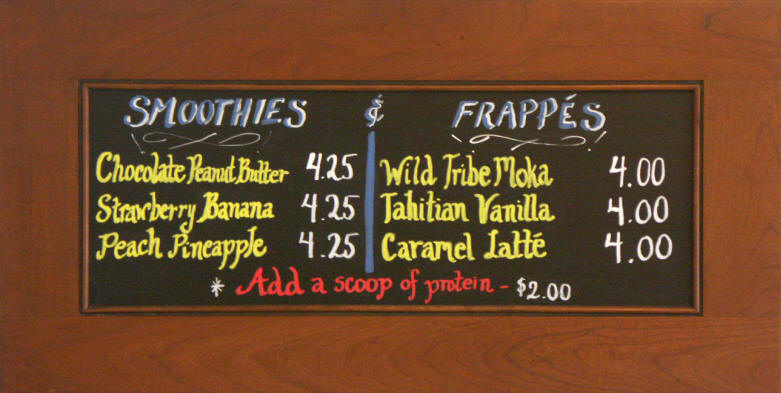 SMOOTHIES & FRAPPÉS
Chocolate Peanut Butter 4.25 Wild Tribe Moka 4.00
Strawberry Banana 4.25 Tahitian Vanilla 4.00
Peach Pineapple 4.25 Caramel Latté 4.00
* Add a scoop of protein - $2.00